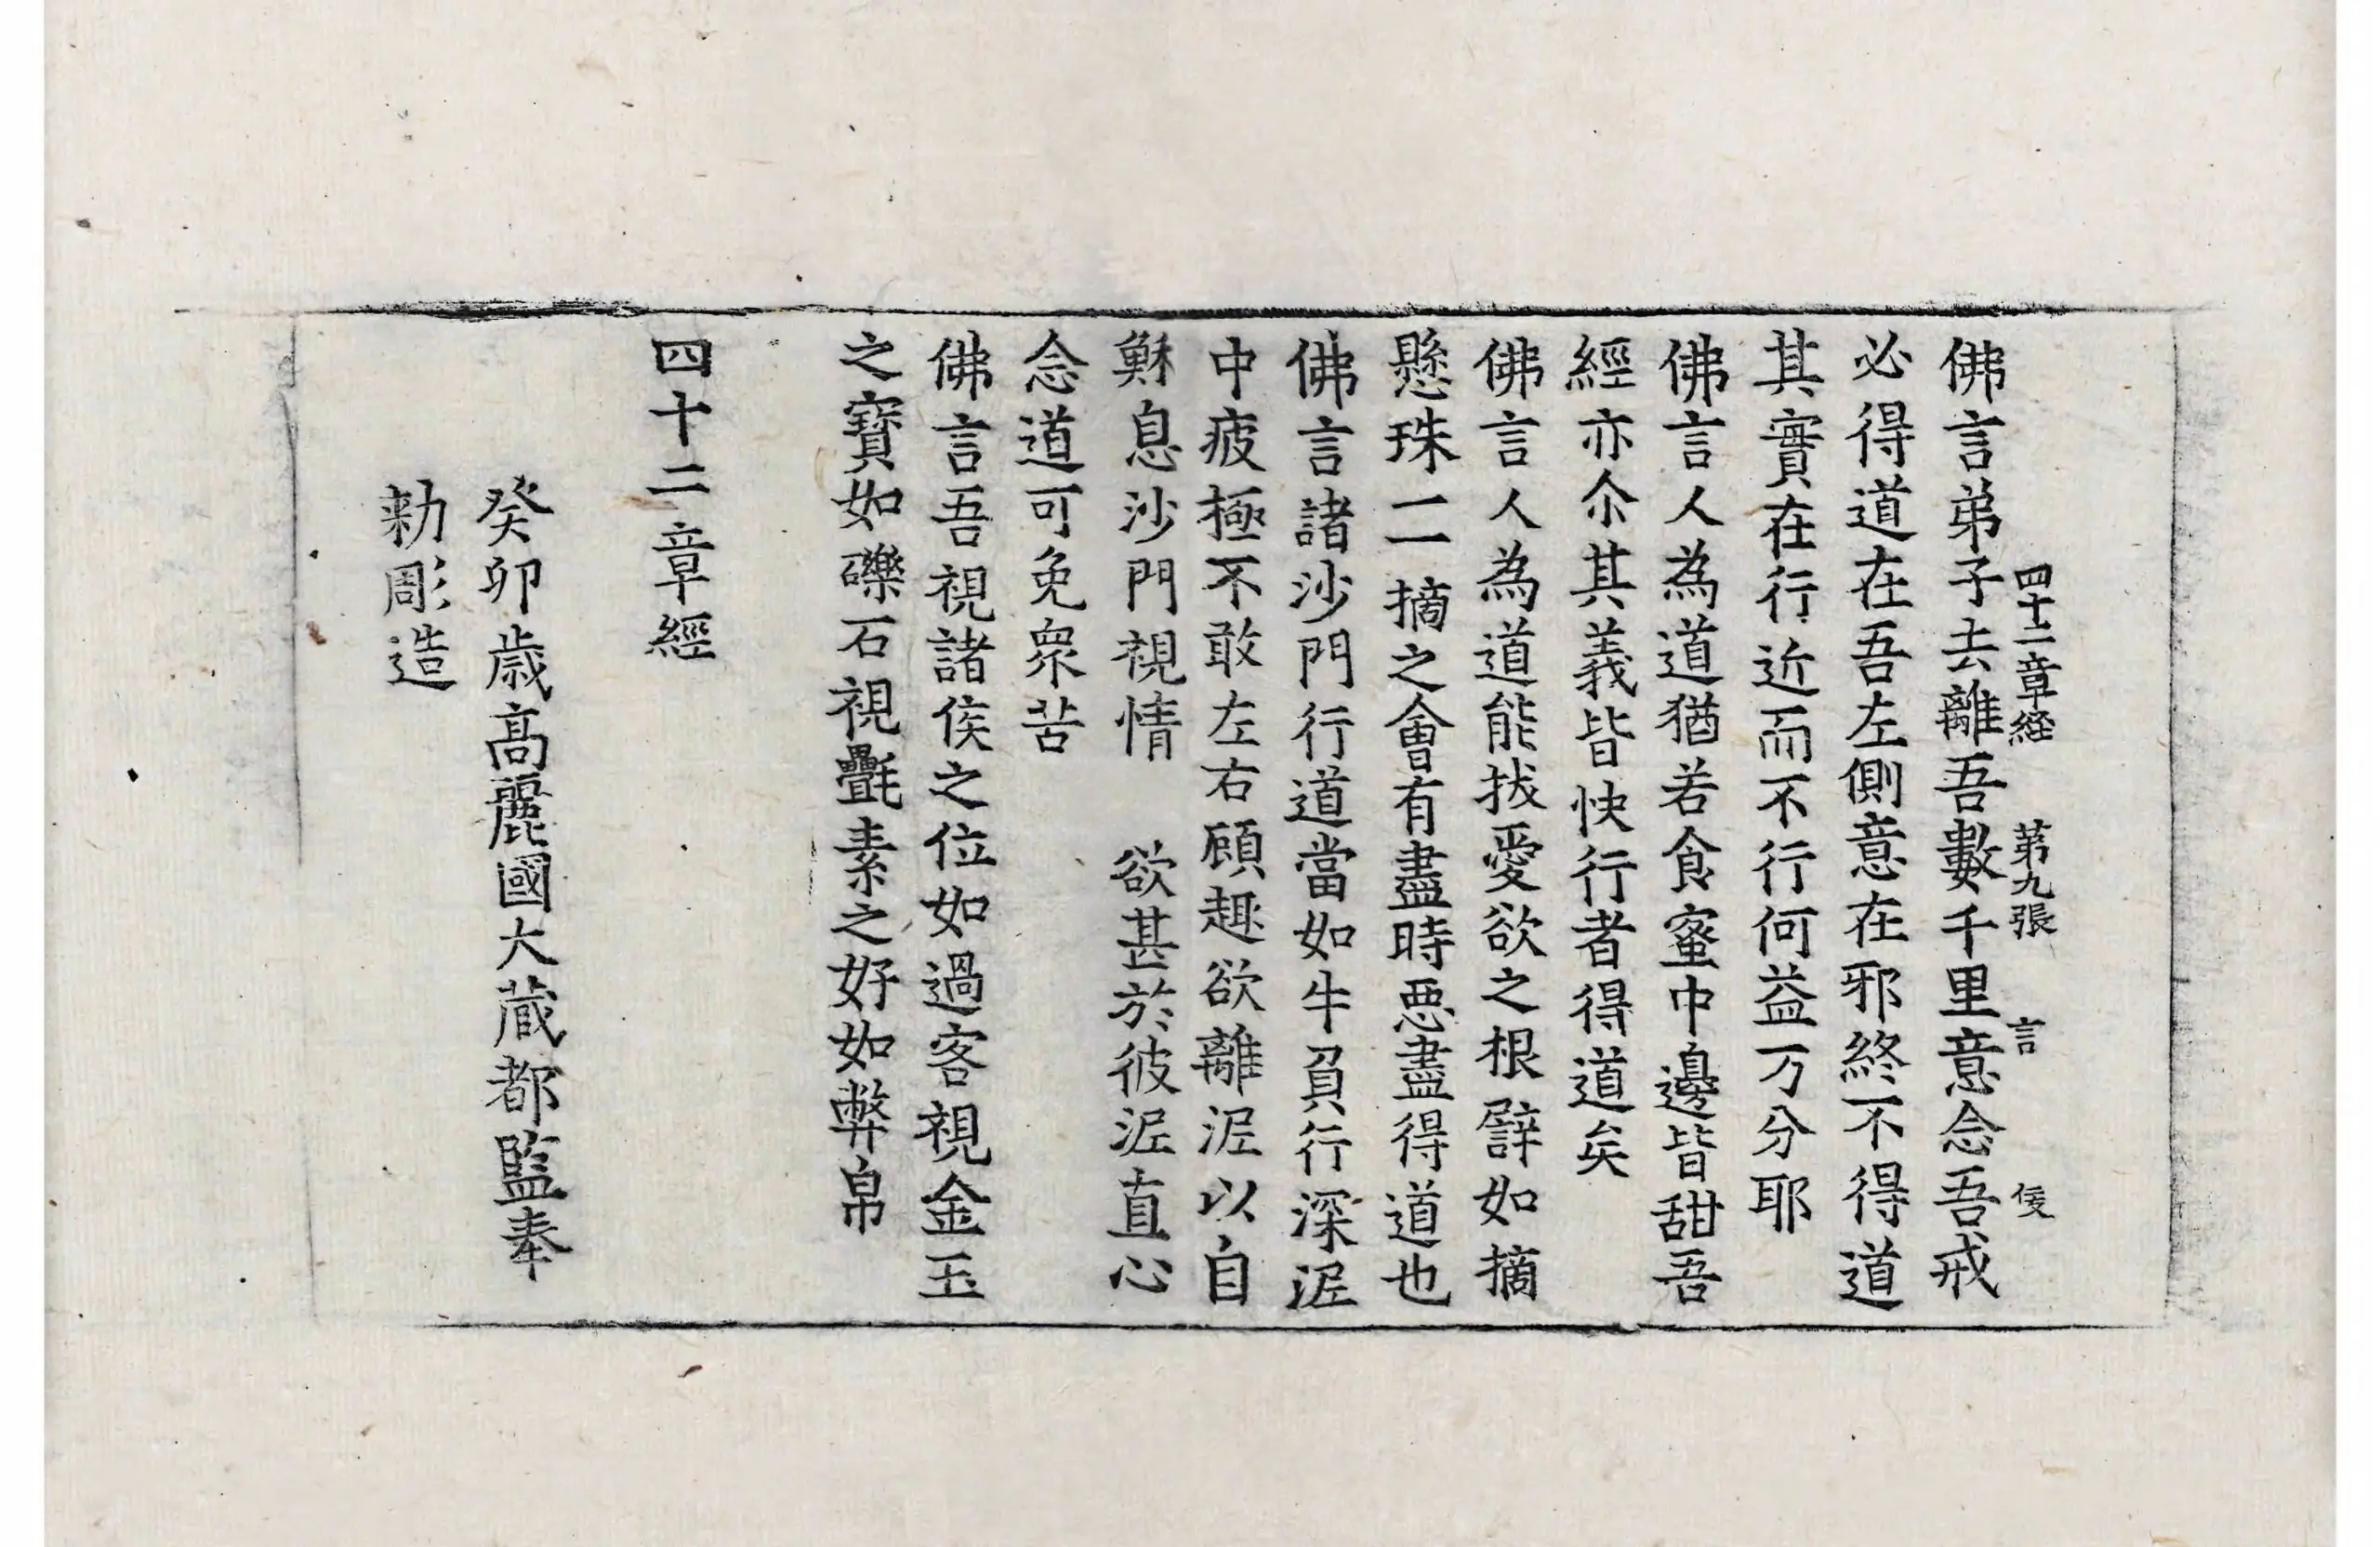 四十二章経 第九張 言
佛言弟子去離吾數千里意念吾戒
必得道在吾左側意在邪終不得道
其實在行近而不行何益万分耶
佛言人為道猶若食蜜中邊皆甜吾
經亦尒其義皆快行者得道矣
佛言人為道能拔愛欲之根譬如摘
懸珠一一摘之會有盡時惡盡得道也
佛言諸沙門行道當如牛負行深泥
中疲極不敢左右顧趣欲離泥以自
穌息沙門視情 欲甚於彼泥直心
念道可免衆苦
佛言吾視諸侯之位如過客視金玉
之寶如礫石視氎素之好如弊帛
四十二章經
癸卯歲高麗國大藏都監奉
勑彫造